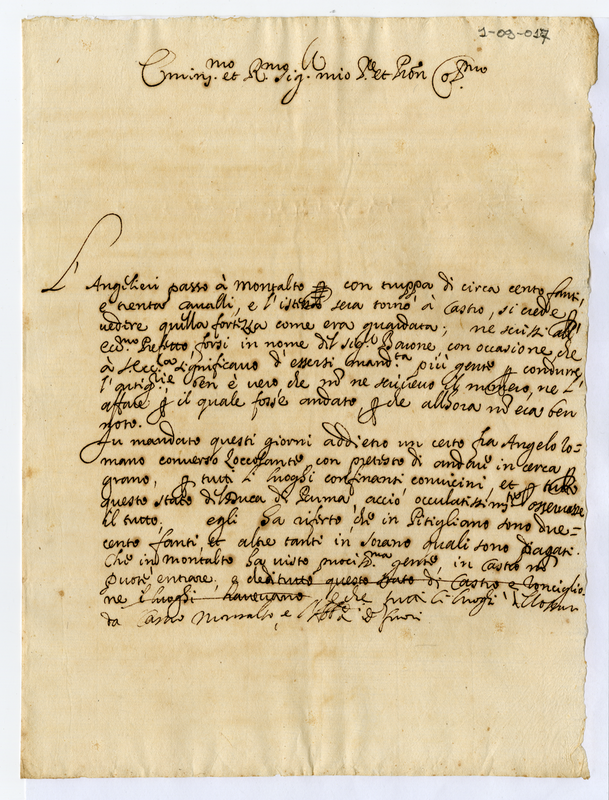 1-03-017
Emin.mo et R.mo Sig. mio P.ne et Pron Co.mo
L'Angelieri passò à montalto con truppa di circa cento fanti,
e trenta cavalli, e l'istessa sera tornò à Castro, si crede p
vedere quella fortezza come era guardata; ne scrissi all'
ecc.mo Prefetto, forsi in nome del sig.r Barone con occasione, che
à significavo d'essersi mand.ta più gente p condurre
l'artig.rie ben è vero che nò ne scrivevo il numero, ne l'
affare p il quale fosse andato, p che allhora nò era ben
noto.
Fu mandato questi giorni addietro un certo fra Angelo Ro=
mano converso Zoccolante con pretesto di andare in cerca
grano, p tutti li luoghi confinanti convicini, et p tutto
questo stato di Duca di Parma acciò occultatissim.te osservasse
il tutto, egli ha riferto che in Pitigliano sono due=
cento fanti et altre tanti in Sorano quali sono pagati.
Che in montalto ha visto pochiss.ma gente, in Castro nò
puote entrare, e che tutto questo stato di Castro e Ronciglio
ne i luoghi havevano che tutti li luoghi
da Castro Montalto, e di fuori